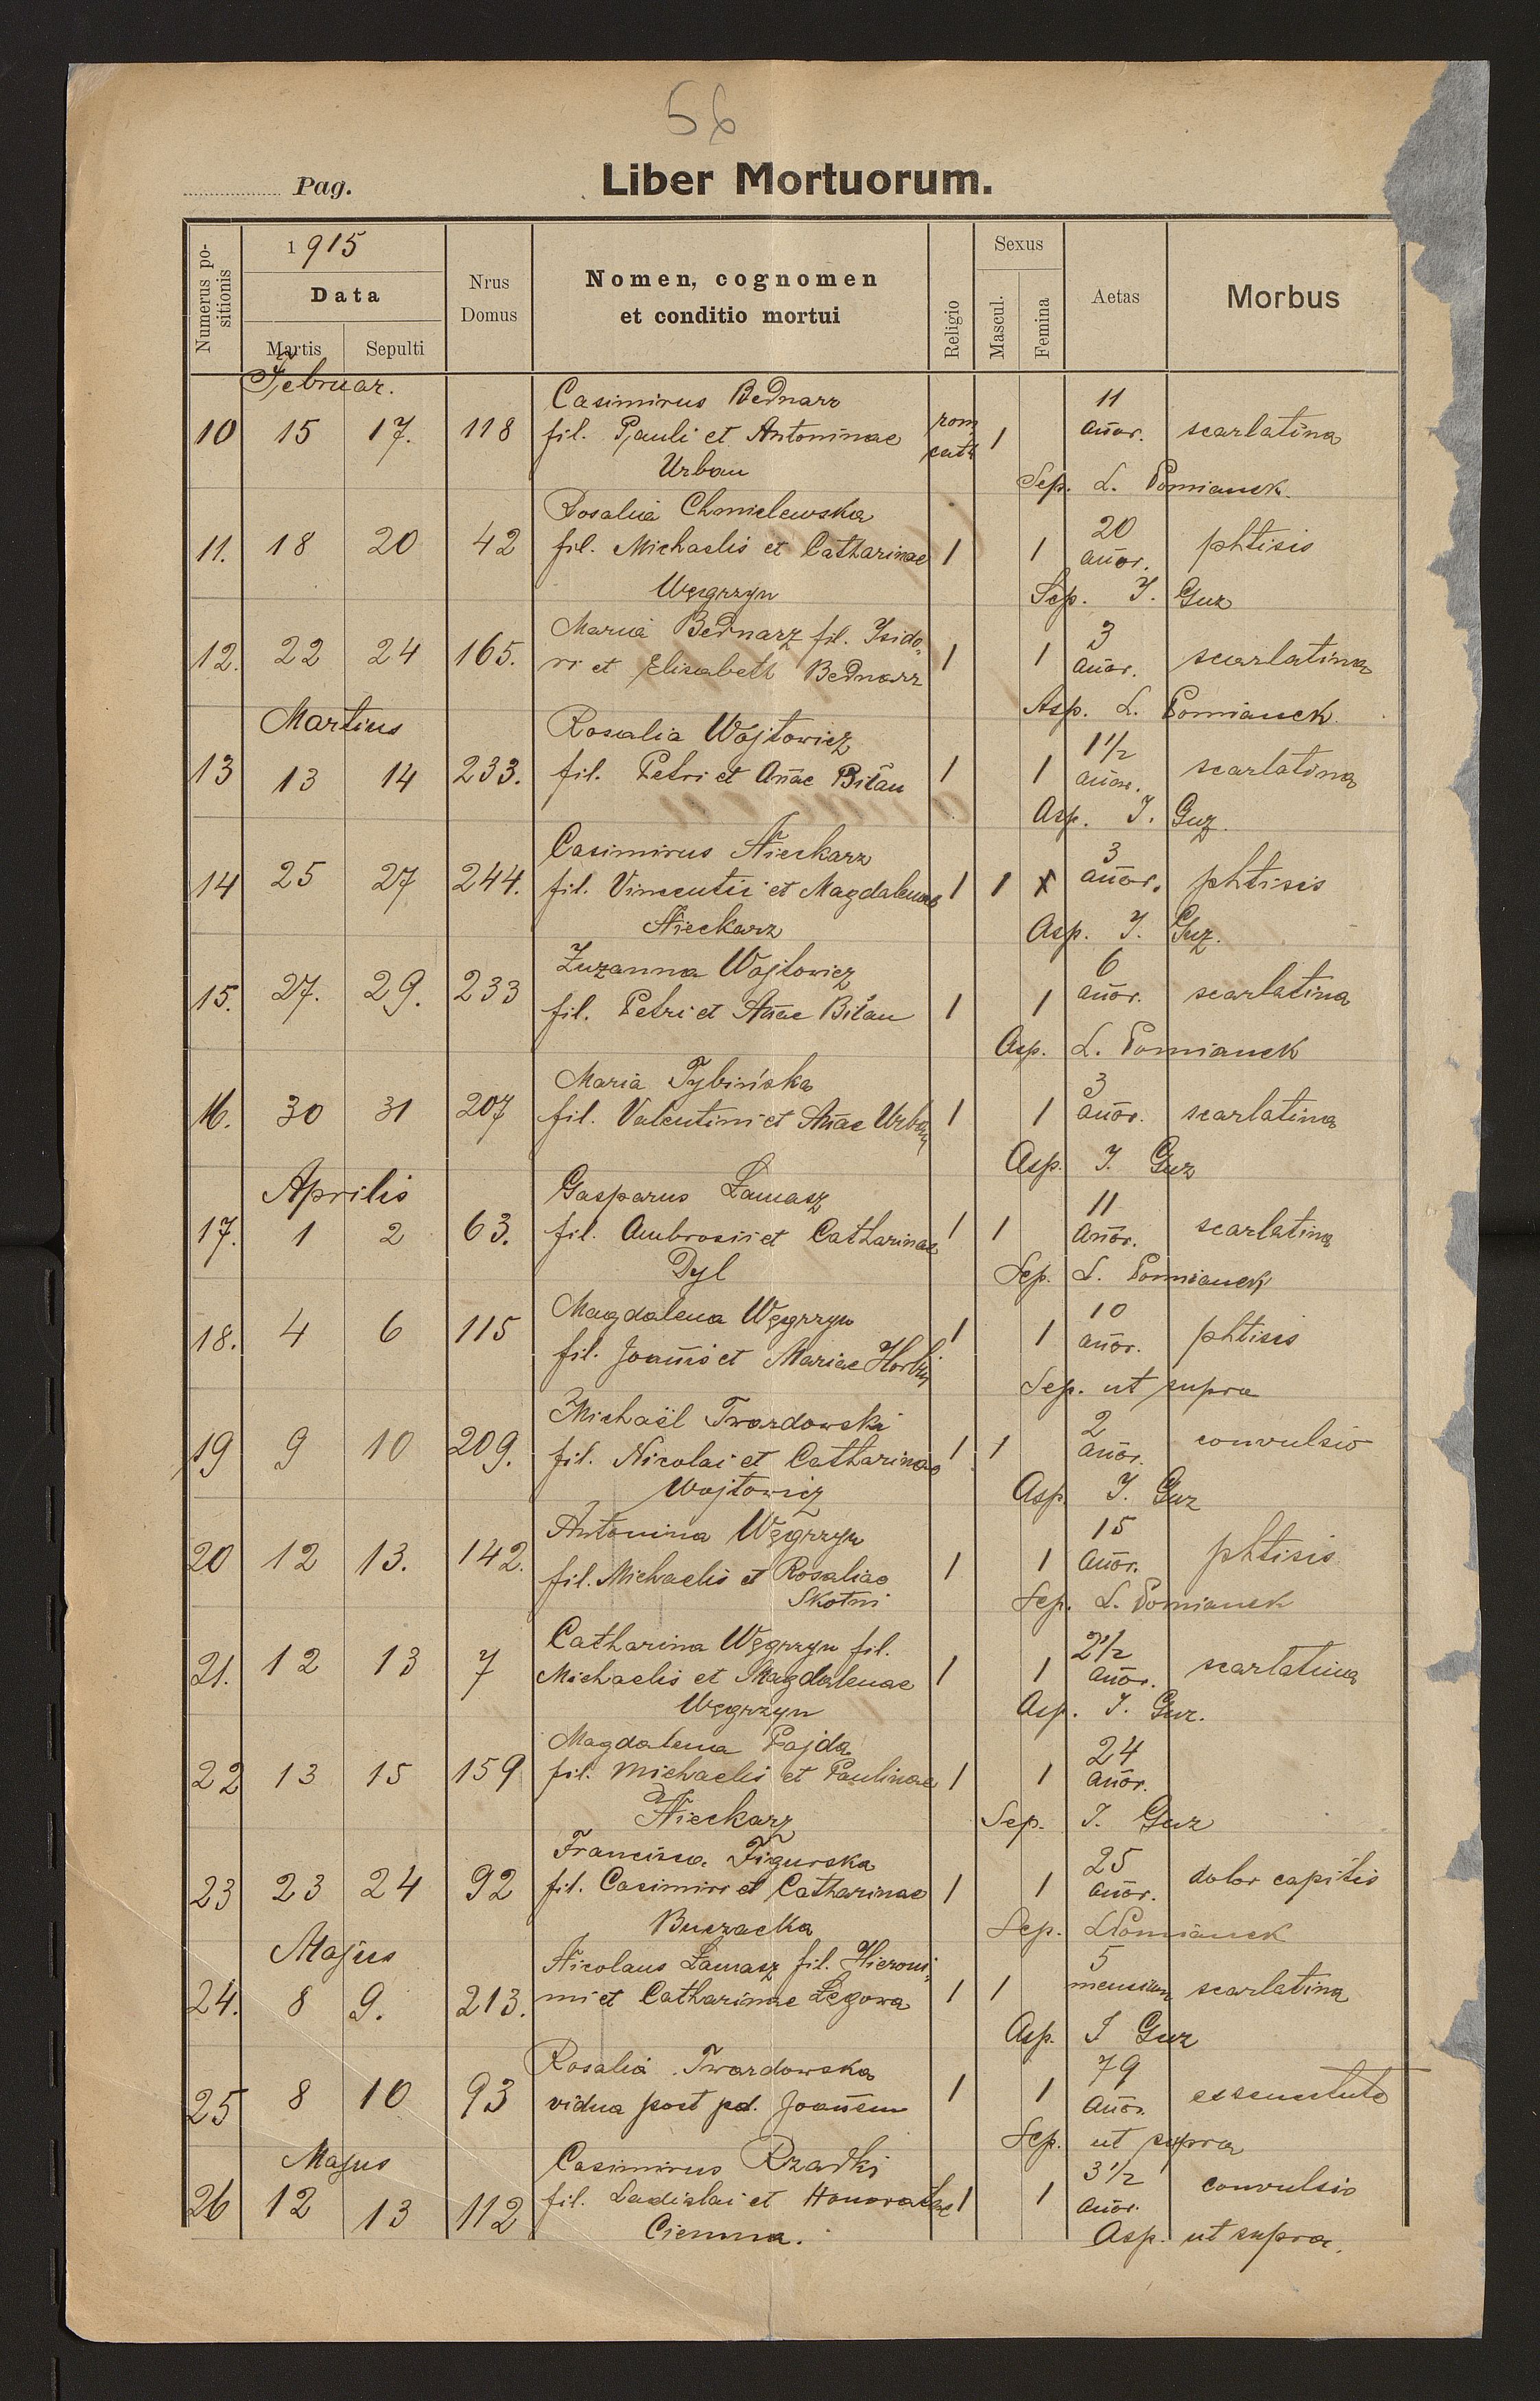 56
Pag. Liber Mortuorum.
Numerus positionis 1915 Data Martis Sepulti Nrus Domus Nomen, cognomen et conditio mortui Religio Sexus Mascul. Femina Aetas Morbus
Februar.
Casimirus Bednarz 11
10 15 17. 118 fil. Pauli et Antoninae rom cath 1 añor. scarlatina
Urban Sep. L. Pomianek.
Rosalia Chmielewska 20
11. 18 20 42 fil. Michaelis et Catharinae 1 1 añor. phtisis
Węgrzyn Sep. J. Guz
Maria Bednarz fil. Isido- 3
12. 22 24 165. ri et Elisabeth Bednarz 1 1 añor. scarlatina
Asp. L. Pomianek
Martius Rosalia Wojtowicz 1 1/2
13 13 14 233. fil. Petri et Añae Bilău 1 1 añor. scarlatina
Asp. J. Guz.
Casimirus Nieckarz 3
14 25 27 244. fil. Vincentii et Magdalenae 1 1 x añor. phtisis
Nieckarz Asp. J. Guz.
Zuzanna Wojtowicz 6
15. 27. 29. 233 fil. Petri et Añae Bilau 1 1 añor. scarlatina
Asp. L. Pomianek
Maria Tybińska 3
16. 30 31 207 fil. Valentini et Añae Urban 1 1 añor. scarlatina
Asp. J. Guz
Aprilis Gasparus Łamasz 11
17. 1 2 63. fil. Ambrosii et Catharinae 1 1 añor. scarlatina
Dyl Sep. L. Pomianek
Magdalena Węgrzyn 10
18. 4 6 115 fil. Joañis et Mariae 1 1 añor. phtisis
Sep. ut supra
Michaël Twardowski 2
19 9 10 209. fil. Nicolai et Catharinae 1 1 añor. convulsio
Wojtowicz Asp. J. Guz
Antonina Węgrzyn 15
20 12 13. 142. fil. Michaelis et Rosaliae 1 1 añor. phtisis
Skotni Sep. L. Pomianek
Catharina Węgrzyn fil. 2 1/2
21. 12 13 7 Michaelis et Magdalenae 1 1 añor. scarlatina
Węgrzyn Asp. J. Guz.
Magdalena Pajda 24
22 13 15 159 fil. Michaelis et Paulinae 1 1 añor.
Nieckarz Sep. J. Guz
Francisca Figurska 25
23 23 24 92 fil. Casimiri et Catharinae 1 1 añor. dolor capitis
Buczacka Sep. L Pomianek
Majus Nicolaus Łamasz fil. Hieroni- 5
24. 8 9. 213. mi et Catharinae Łęgowa 1 1 mensium scarlatina
Asp. J Guz
Rosalia Twardowska 79
25 8 10 93 vidua post pd. Joañem 1 1 añor.
Sep. ut supra
Majus Casimirus Rzadki 3 1/2
26 12 13 112 fil. Ladislai et Honoratae 1 1 añor. convulsio
Ciemna. Asp. ut supra.